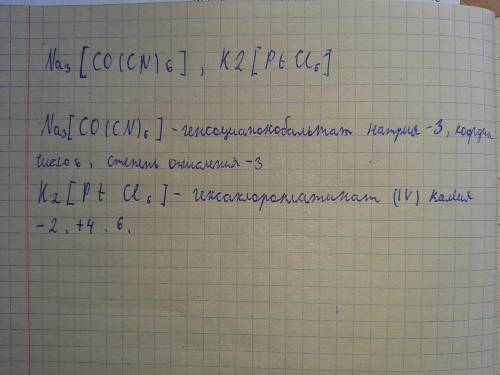 Na₃[CO(CN)6], K2[PtCl₆]
Na₃[CO(CN)₆] - гексоцианокобальтат натрия -3, коорден
число 6, степень окисления -3
K₂[Pt Cl₆] - гексахлороплатинат (IV) калия
-2. +4. 6.